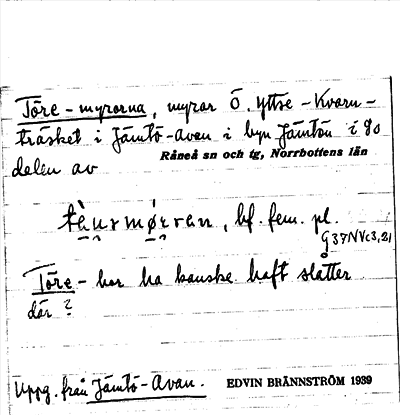 Töre-myrorna, myrar Ö. Yttse-Kvarn-
träsket i Jämtö-avan i byn Jämtön i So
Råneå sn och tg, Norrbottens län
delen av
bf. fem. pl.
G37NVc3,21
Töre- har ha kanske haft slåtter
där?
Uppg. från Jämtö-Avan. EDVIN BRÄNNSTRÖM 1939